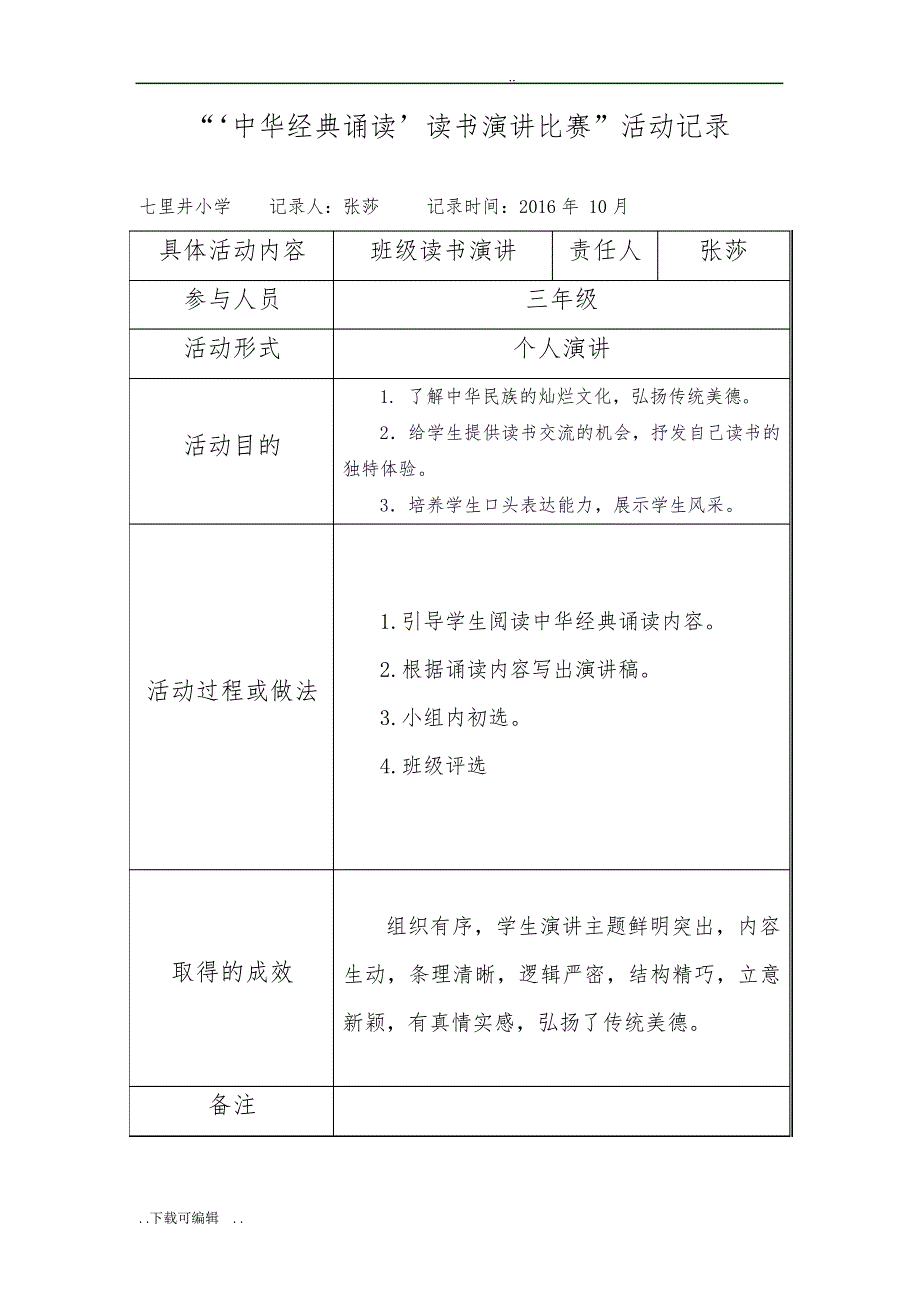 ..
“‘中华经典诵读’读书演讲比赛”活动记录
七里井小学 记录人：张莎 记录时间：2016年 10月
具体活动内容 班级读书演讲 责任人 张莎
参与人员 三年级
活动形式 个人演讲
活动目的
1. 了解中华民族的灿烂文化，弘扬传统美德。
2．给学生提供读书交流的机会，抒发自己读书的
独特体验。
3．培养学生口头表达能力，展示学生风采。
活动过程或做法
1.引导学生阅读中华经典诵读内容。
2.根据诵读内容写出演讲稿。
3.小组内初选。
4.班级评选
取得的成效
组织有序，学生演讲主题鲜明突出，内容
生动，条理清晰，逻辑严密，结构精巧，立意
新颖，有真情实感，弘扬了传统美德。
备注
..下载可编辑 ..